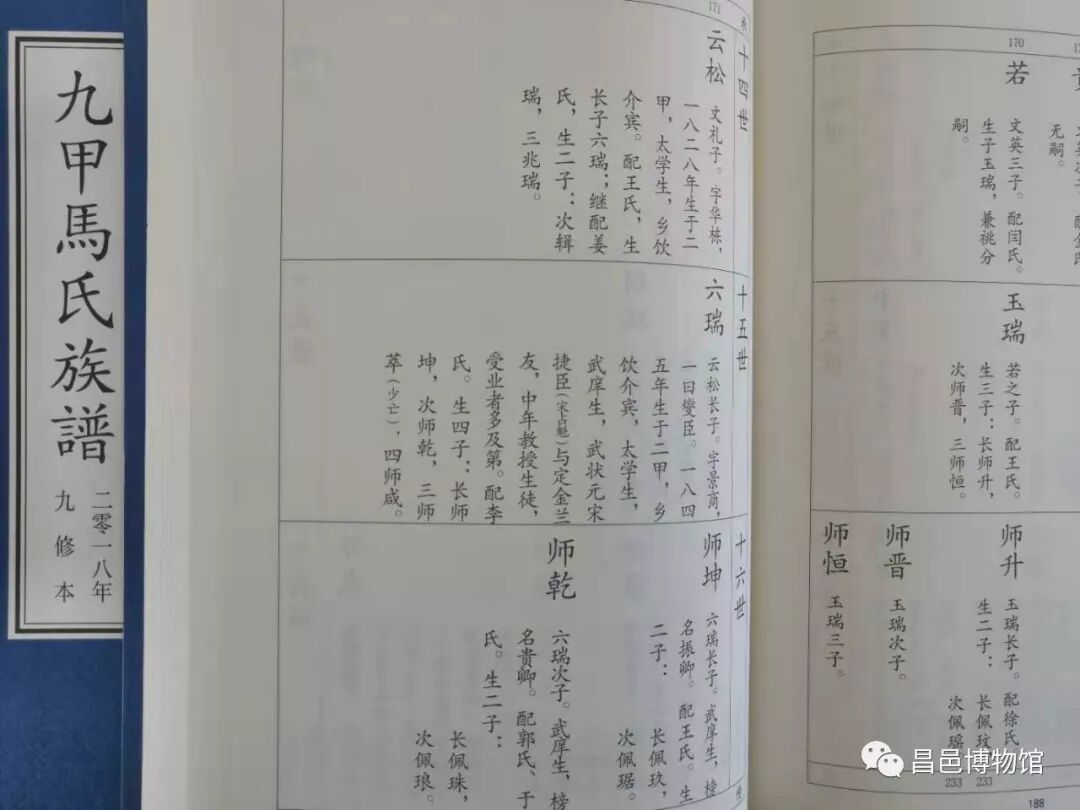 九甲馬氏族譜
二零一八年
九修本
171
十四世
云松
文礼子。字华栋，
一八二八年生于二
甲，太学生，乡饮
介宾。配王氏，生
长子六瑞；继配姜
氏，生二子：次辑
瑞，三兆瑞。
十五世
六瑞
云松长子。字景商，
一曰燮臣。一八四
五年生于二甲，乡
饮介宾，太学生，
武庠生，武状元宋
捷臣（宋占魁）与定金兰
友，中年教授生徒，
受业者多及第。配李
氏。生四子：长师
坤，次师乾，三师
萃（少亡），四师咸。
十六世
师坤
六瑞长子。武庠生，榜
名振卿。配王氏。生
二子：
长佩玖，
次佩琚。
师乾
六瑞次子。武庠生，榜
名贵卿。配郭氏、于
氏。生二子：
长佩珠，
次佩琅。
无嗣。
170
若
文英三子。配闫氏。
生子玉瑞，兼祧分
嗣。
玉瑞
若之子。配王氏。
生三子：长师升，
次师晋，三师恒。
师升
玉瑞长子。配徐氏。
生二子：
长佩玟
次佩瑶
师晋
玉瑞次子。
师恒
玉瑞三子。
233 233
188
昌邑博物馆